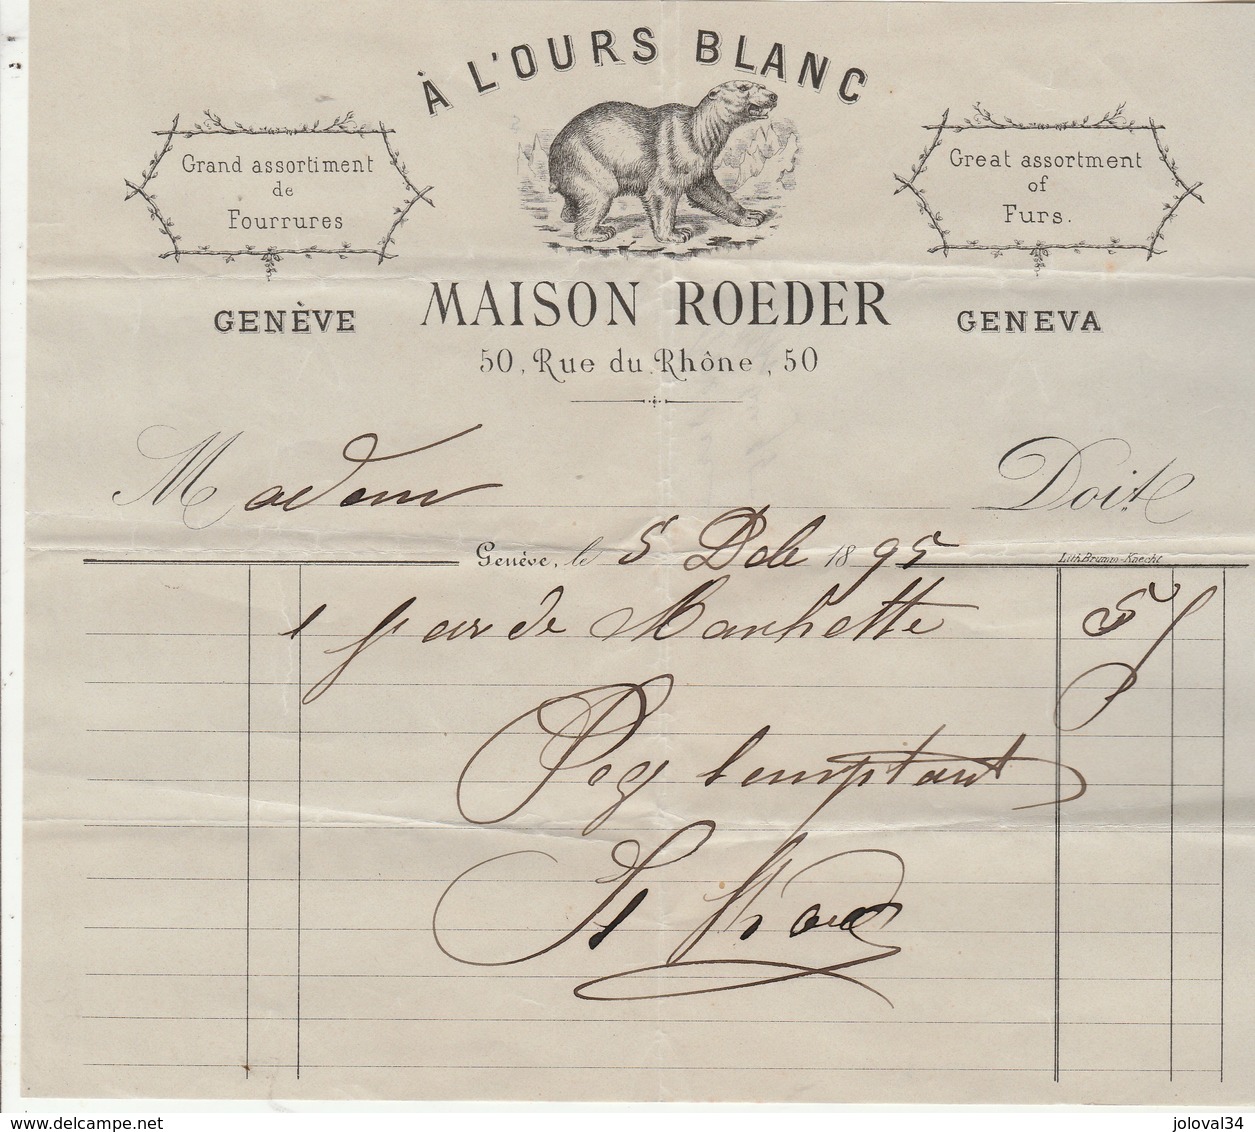 À L'OURS BLANC
Grand assortiment
de
Fourrures
Great assortment
of
Furs.
GENÈVE
MAISON ROEDER
GENEVA
50, Rue du Rhône, 50
Madame Doit
Genève, le 5 Dcb 1895
Lith. Brumm-Knecht
1 pair de Manchette 5
Pay Comptant
delcampe.net
joloval34